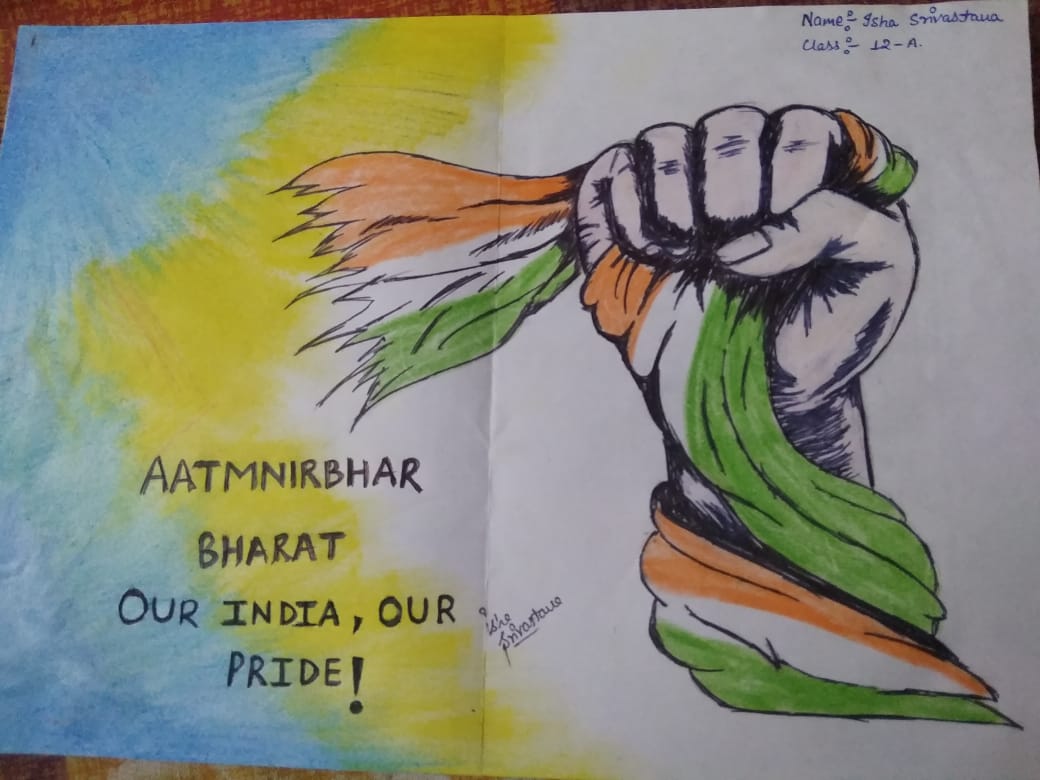 Name:- Isha Srivastava
Class:- 12-A.
AATMNIRBHAR
BHARAT
OUR INDIA, OUR
PRIDE!
Isha
Srivastava